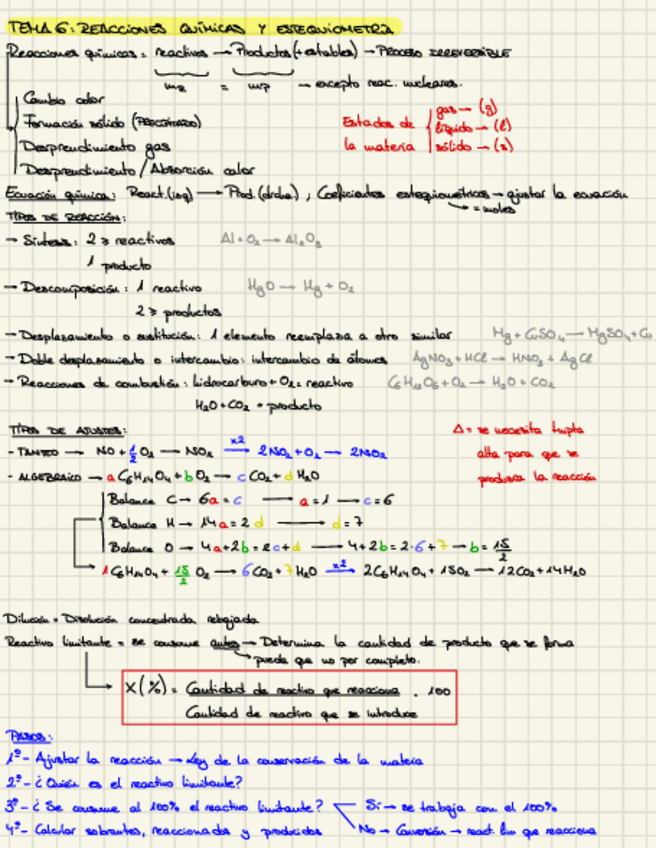 TEMA 6: REACCIONES QUÍMICAS Y ESTEQUIOMETRÍA
Reacciones químicas = reactivos → Productos (+ estables) → PROCESO IRREVERSIBLE
mR = mP → excepto reac. nucleares.
Cambio color
Formación sólido (PRECIPITADO)
Desprendimiento gas
Desprendimiento / Absorción calor
Estados de la materia
gas → (g)
líquido → (l)
sólido → (s)
Ecuación química: React. (izq) → Prod. (drcha) ; Coeficientes estequiométricos → ajustar la ecuación
→ = moles
TIPOS DE REACCIÓN:
→ Síntesis: 2 ≥ reactivos Al + O₂ → Al₂O₃
1 producto
→ Descomposición: 1 reactivo HgO → Hg + O₂
2 ≥ productos
→ Desplazamiento o sustitución: 1 elemento reemplaza a otro similar Mg + CuSO₄ → MgSO₄ + Cu
→ Doble desplazamiento o intercambio: intercambio de átomos AgNO₃ + HCl → HNO₃ + AgCl
→ Reacciones de combustión: hidrocarburo + O₂ = reactivo C₆H₁₂O₆ + O₂ → H₂O + CO₂
H₂O + CO₂ = producto
TIPOS DE AJUSTES:
- TANTEO → NO + 1/2 O₂ → NO₂ x2→ 2NO₂ + O₂ → 2NO₂
Δ = se necesita tupta
alta para que se
produzca la reacción
- ALGEBRAICO → a C₆H₁₄O₄ + b O₂ → c CO₂ + d H₂O
Balance C → 6a = c → a = 1 → c = 6
Balance H → 14a = 2d → d = 7
Balance O → 4a + 2b = 2c + d → 4 + 2b = 2·6 + 7 → b = 15/2
1 C₆H₁₄O₄ + 15/2 O₂ → 6CO₂ + 7H₂O x2→ 2C₆H₁₄O₄ + 15O₂ → 12CO₂ + 14H₂O
Dilución = Disolución concentrada rebajada
Reactivo limitante = se consume antes → Determina la cantidad de producto que se forma
→ puede que no por completo.
X(%) = Cantidad de reactivo que reacciona . 100
Cantidad de reactivo que se introduce
PASOS:
1º- Ajustar la reacción → Ley de la conservación de la materia
2º- ¿Quién es el reactivo limitante?
3º- ¿Se consume al 100% el reactivo limitante? Sí → se trabaja con el 100%
No → Conversión → react. lim que reacciona
4º- Calcular sobrantes, reaccionados y producidos